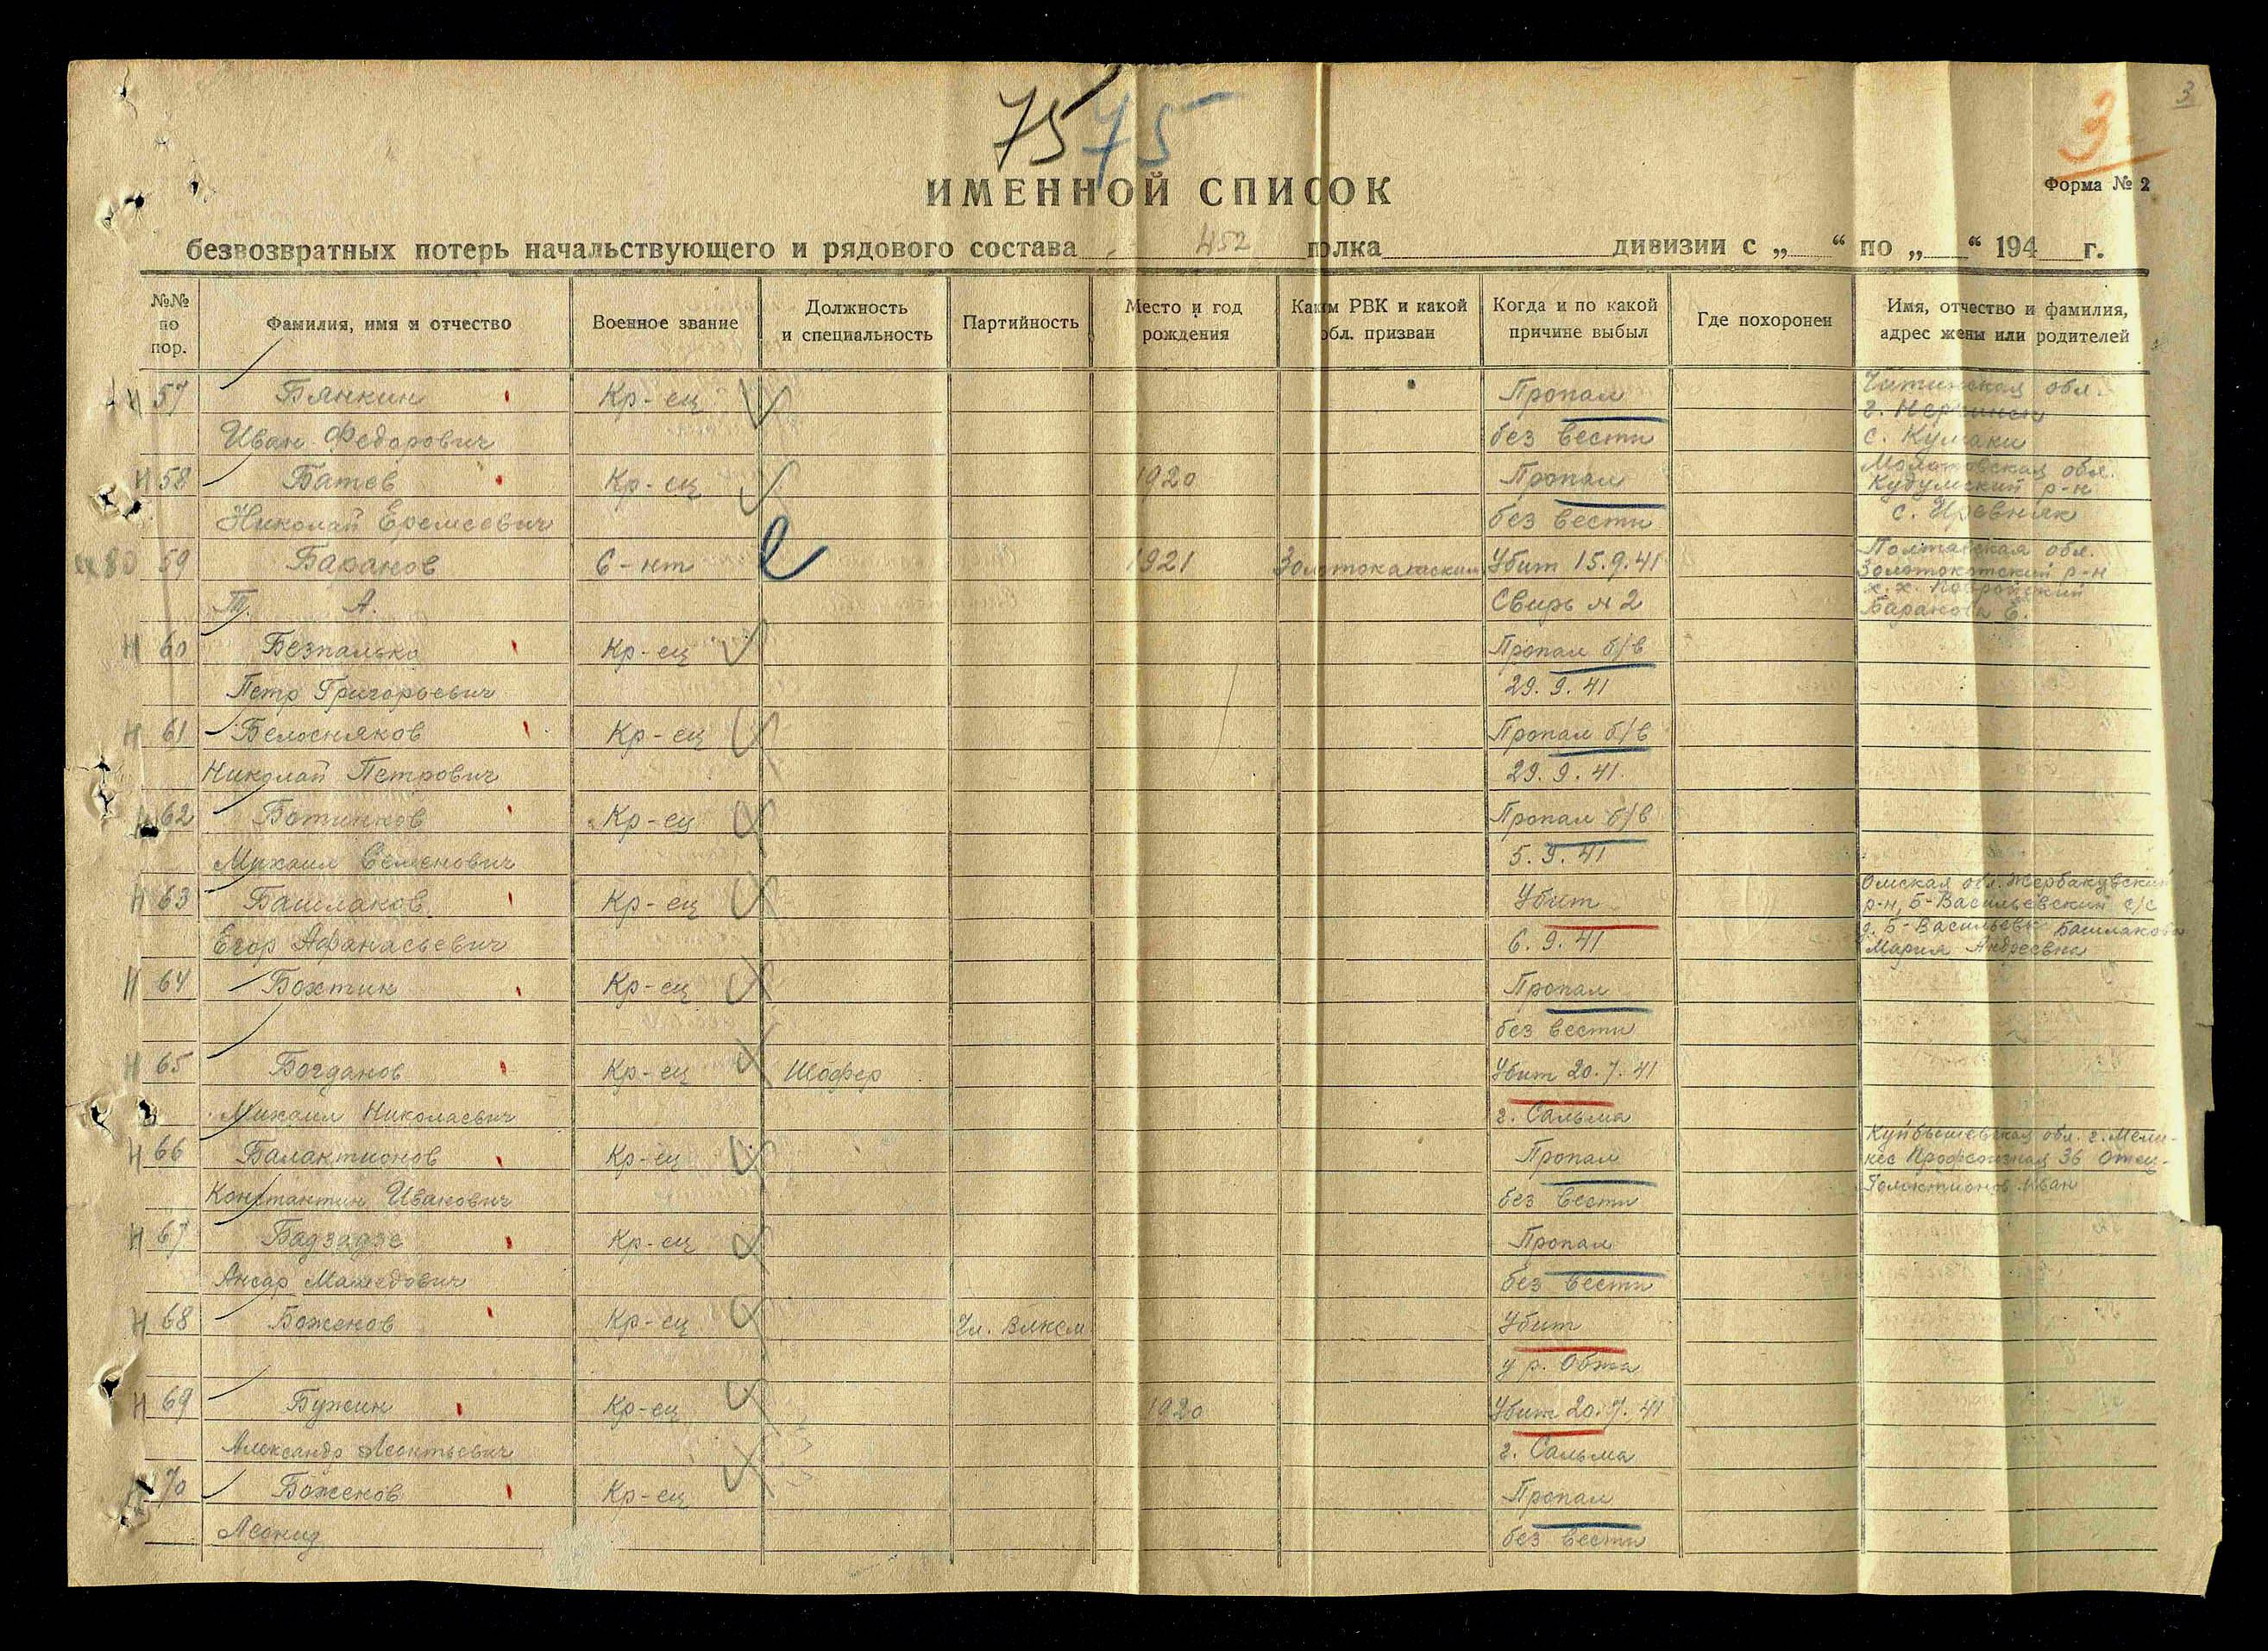 75 75
3
3
ИМЕННОЙ СПИСОК
Форма № 2
безвозвратных потерь начальствующего и рядового состава 452 полка дивизии с „ “ по „ “ 194 г.
№№ по пор. Фамилия, имя и отчество Военное звание Должность и специальность Партийность Место и год рождения Каким РВК и какой обл. призван Когда и по какой причине выбыл Где похоронен Имя, отчество и фамилия, адрес жены или родителей
57 Бянкин Кр-ец Пропал Читинская обл.
г. Нерчинск
Иван Федорович без вести с. Кумаки
58 Батев Кр-ец 1920 Пропал Молотовская обл.
Кудумский р-н
Николай Еремеевич без вести с.
59 Баранов С-нт 1921 Убит 15.9.41 Полтавская обл.
р-н
Т. А. Свирь №2 х.
Баранова Е.
60 Безпалько Кр-ец Пропал б/в
Петр Григорьевич 29.9.41
61 Белосняков Кр-ец Пропал б/в
Николай Петрович 29.9.41.
62 Ботинков Кр-ец Пропал б/в
Михаил Семенович 5.9.41
63 Башлаков Кр-ец Убит Омская обл.
р-н, Б-Васильевский с/с
Егор Афанасьевич 6.9.41 д. Б-Васильевк Башлакова
Мария Андреевна
64 Бохтин Кр-ец Пропал
без вести
65 Богданов Кр-ец Шофер Убит 20.7.41
Михаил Николаевич г. Сальма
66 Балактионов Кр-ец Пропал Куйбышевская обл. г. Меле-
кес Профсоюзная 36 Отец-
Константин Иванович без вести Иван
67 Бадзадзе Кр-ец Пропал
Ансар Мамедович без вести
68 Боженов Кр-ец Чл. ВЛКСМ Убит
у р. Обжа
69 Бужин Кр-ец 1920 Убит 20.7.41
Александр Леонтьевич г. Сальма
70 Боженов Кр-ец Пропал
Леонид без вести